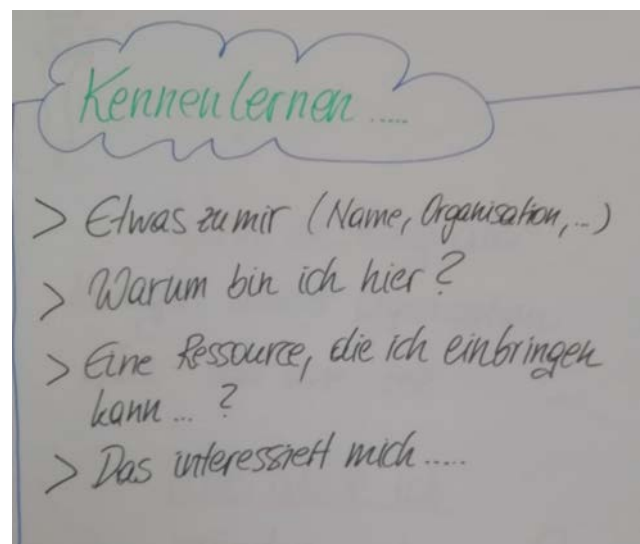 Kennenlernen .....
> Etwas zu mir (Name, Organisation, ...)
> Warum bin ich hier?
> Eine Ressource, die ich einbringen
kann ... ?
> Das interessiert mich .....